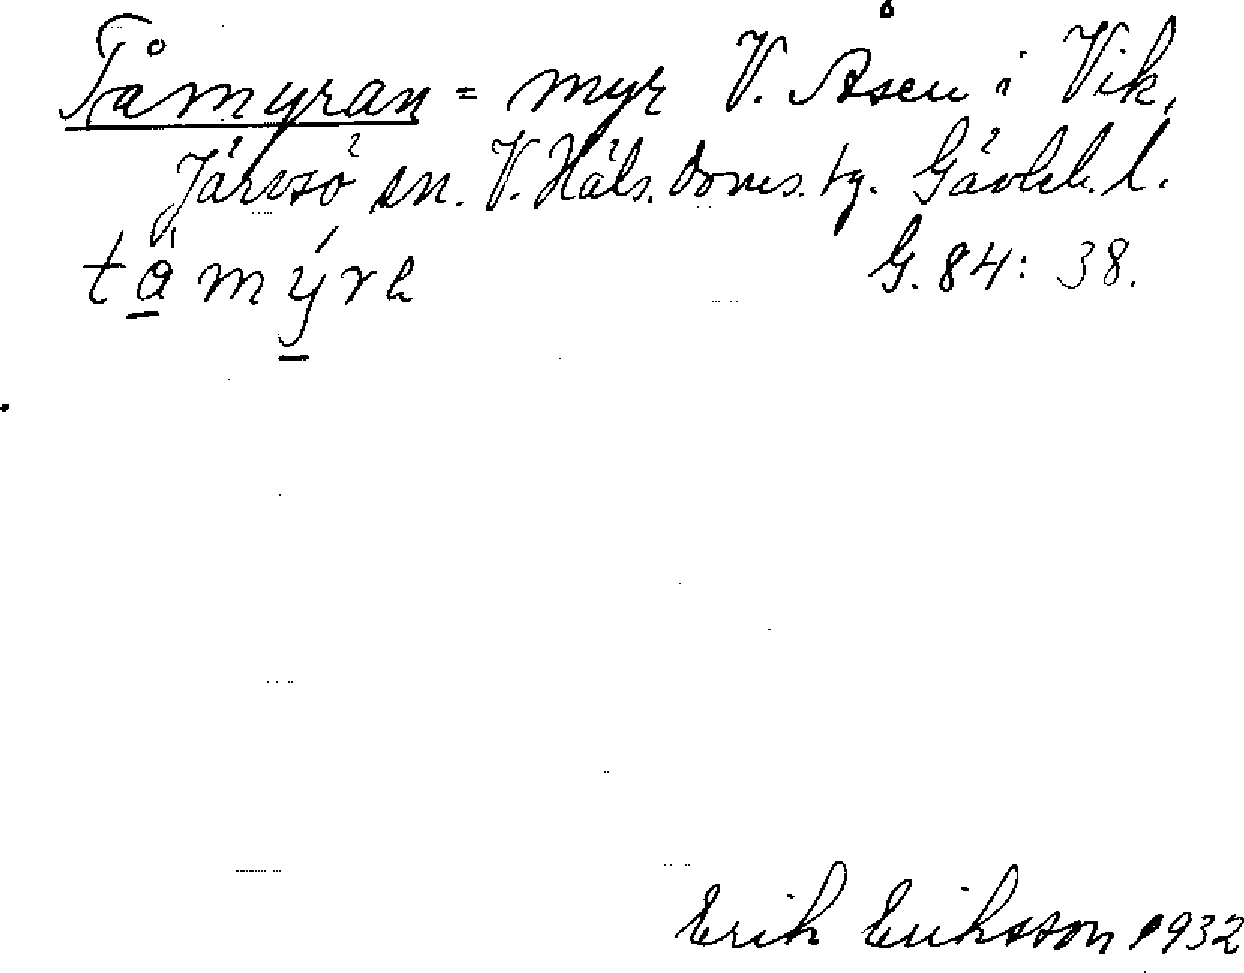 Tåmyran = myr V. Åsen i Vik,
Järvsö sn. V. Häls. doms. tg. Gävleb. l.
tåmýrɑ G. 84: 38.
Erik Eriksson 1932